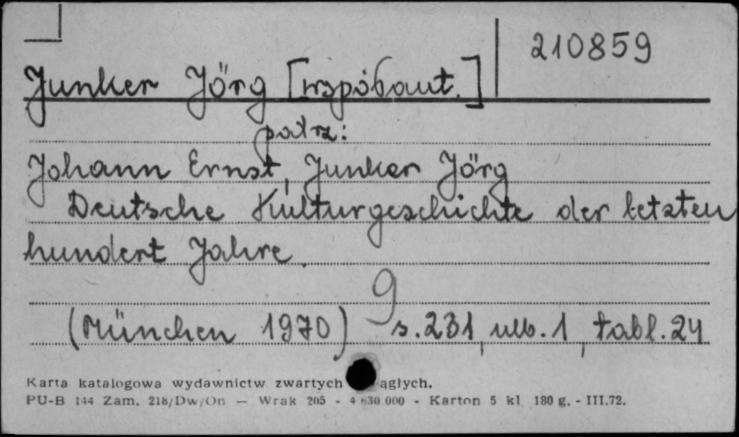 210859
Junker Jörg [współaut.]
patrz:
Johann Ernst, Junker Jörg
Deutsche Kulturgeschichte der letzten
hundert Jahre.
9
(München 1970) s. 231, nlb. 1, tabl. 24
Karta katalogowa wydawnictw zwartych ągłych.
PU-B 144 Zam. 218/Dw/On — Wrak 205 - 4 630 000 - Karton 5 kl 180 g. - III.72.